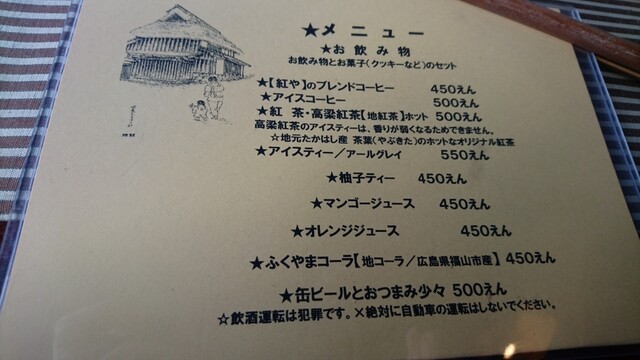 ★メニュー
★お飲み物
お飲み物とお菓子(クッキーなど)のセット
★【紅や】のブレンドコーヒー 450えん
★アイスコーヒー 500えん
★紅 茶・高梁紅茶【地紅茶】ホット 500えん
高梁紅茶のアイスティーは、香りが弱くなるためできません。
☆地元たかはし産 茶葉(やぶきた)のホットなオリジナル紅茶
★アイスティー/アールグレイ 550えん
★柚子ティー 450えん
★マンゴージュース 450えん
★オレンジジュース 450えん
★ふくやまコーラ【地コーラ/広島県福山市産】 450えん
★缶ビールとおつまみ少々 500えん
☆飲酒運転は犯罪です。×絶対に自動車の運転はしないでください。